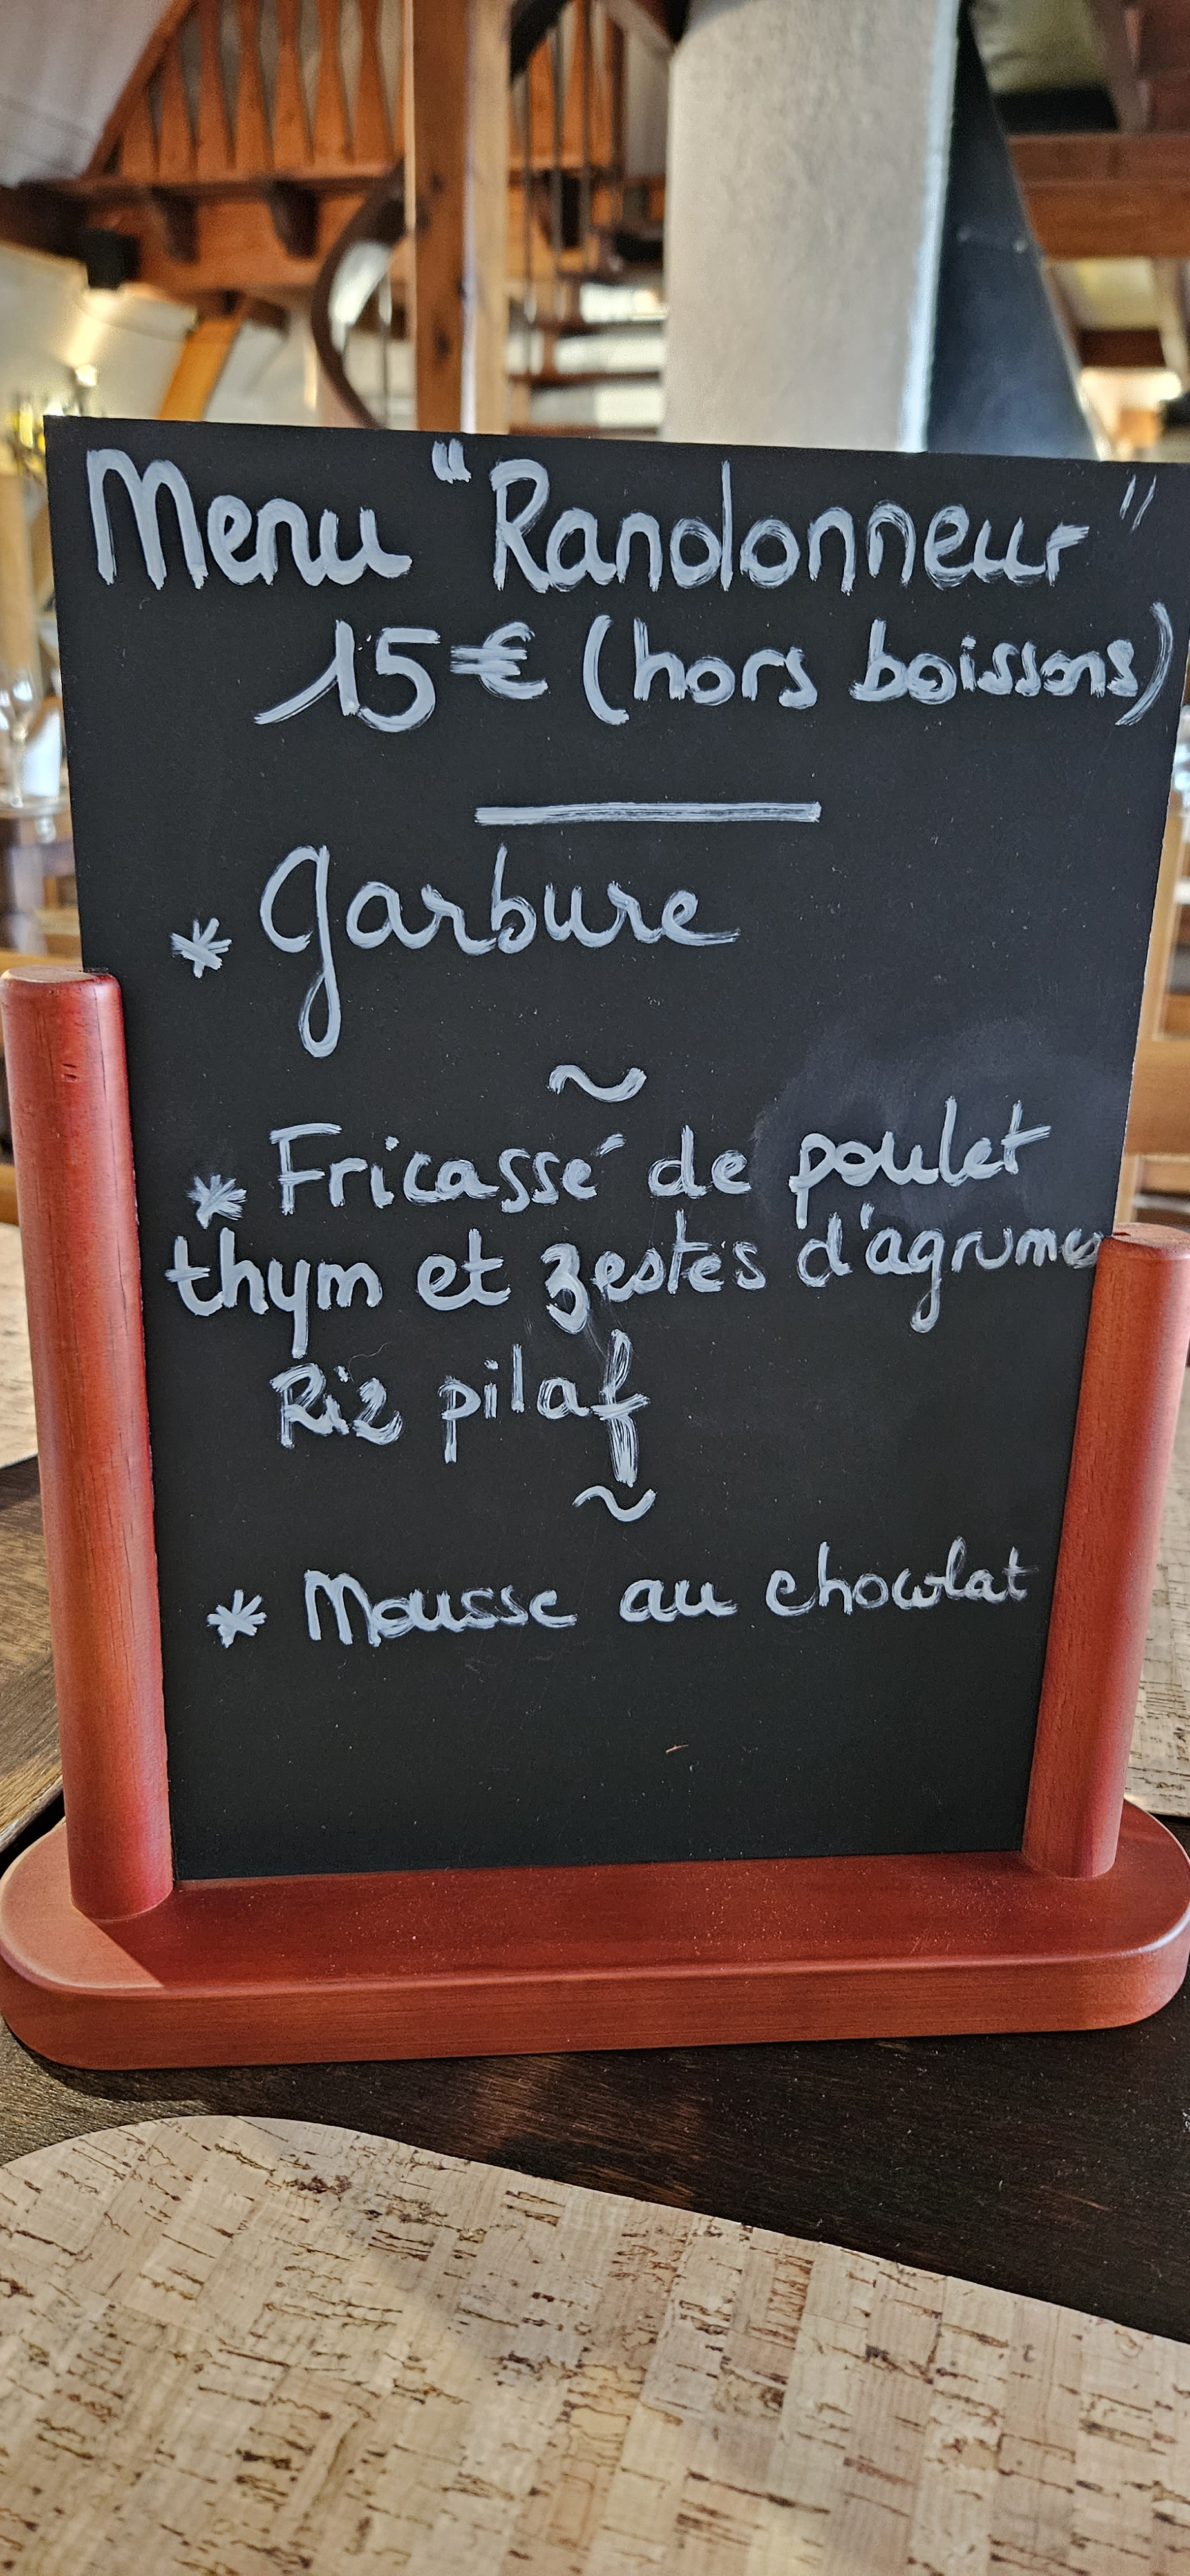 Menu "Randonneur"
15€ (hors boissons)
* Garbure
~
* Fricassé de poulet
thym et zestes d'agrumes
Riz pilaf
~
* Mousse au chocolat